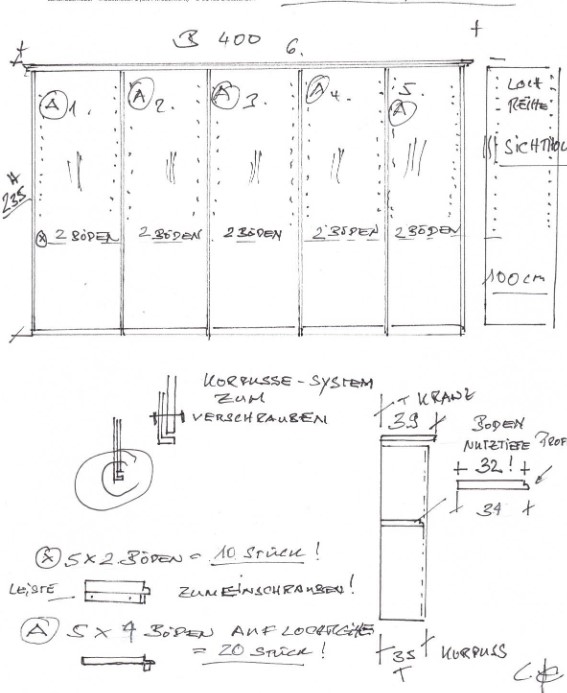 B 400
6.
A 1.
A 2.
A 3.
A 4.
5.
A
LOCH
REIHE
SICHTHOL
H
235
X 2 BÖDEN
2 BÖDEN
2 BÖDEN
2 BÖDEN
2 BÖDEN
100 cm
KORPUSSE-SYSTEM
ZUM
VERSCHRAUBEN
T KRANZ
39
BODEN
NUTZTIEFE
PROF
32!
34
X 5 X 2 BÖDEN = 10 STÜCK!
LEISTE
ZUM EINSCHRAUBEN!
A 5 X 4 BÖDEN AUF LOCHREIHE
= 20 STÜCK!
35 KORPUSS
T